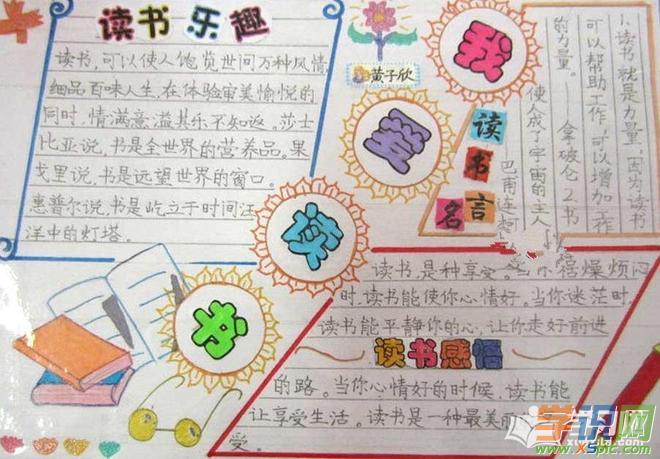 读书乐趣
读书,可以使人饱览世间万种风情,
细品百味人生,在体验审美愉悦的
同时,情满意溢其乐不知返。莎士
比亚说,书是全世界的营养品。果
戈里说,书是远望世界的窗口。
惠普尔说,书是屹立于时间汪
洋中的灯塔。
黄子欣
我
爱
读
书
读书名言
1、读书就是力量,因为读书
可以帮助工作,可以增加工作
的力量。——拿破仑 2、书
使人成了宇宙的主人
巴甫连
读书,是种享受。
燥烦闷
时,读书能使你心情好。当你迷茫时,
读书能平静你的心,让你走好前进
读书感悟
的路。当你心情好的时候,读书能
让享受生活。读书是一种最美
受。
学习网
www.xuexila.com
X5pic.com